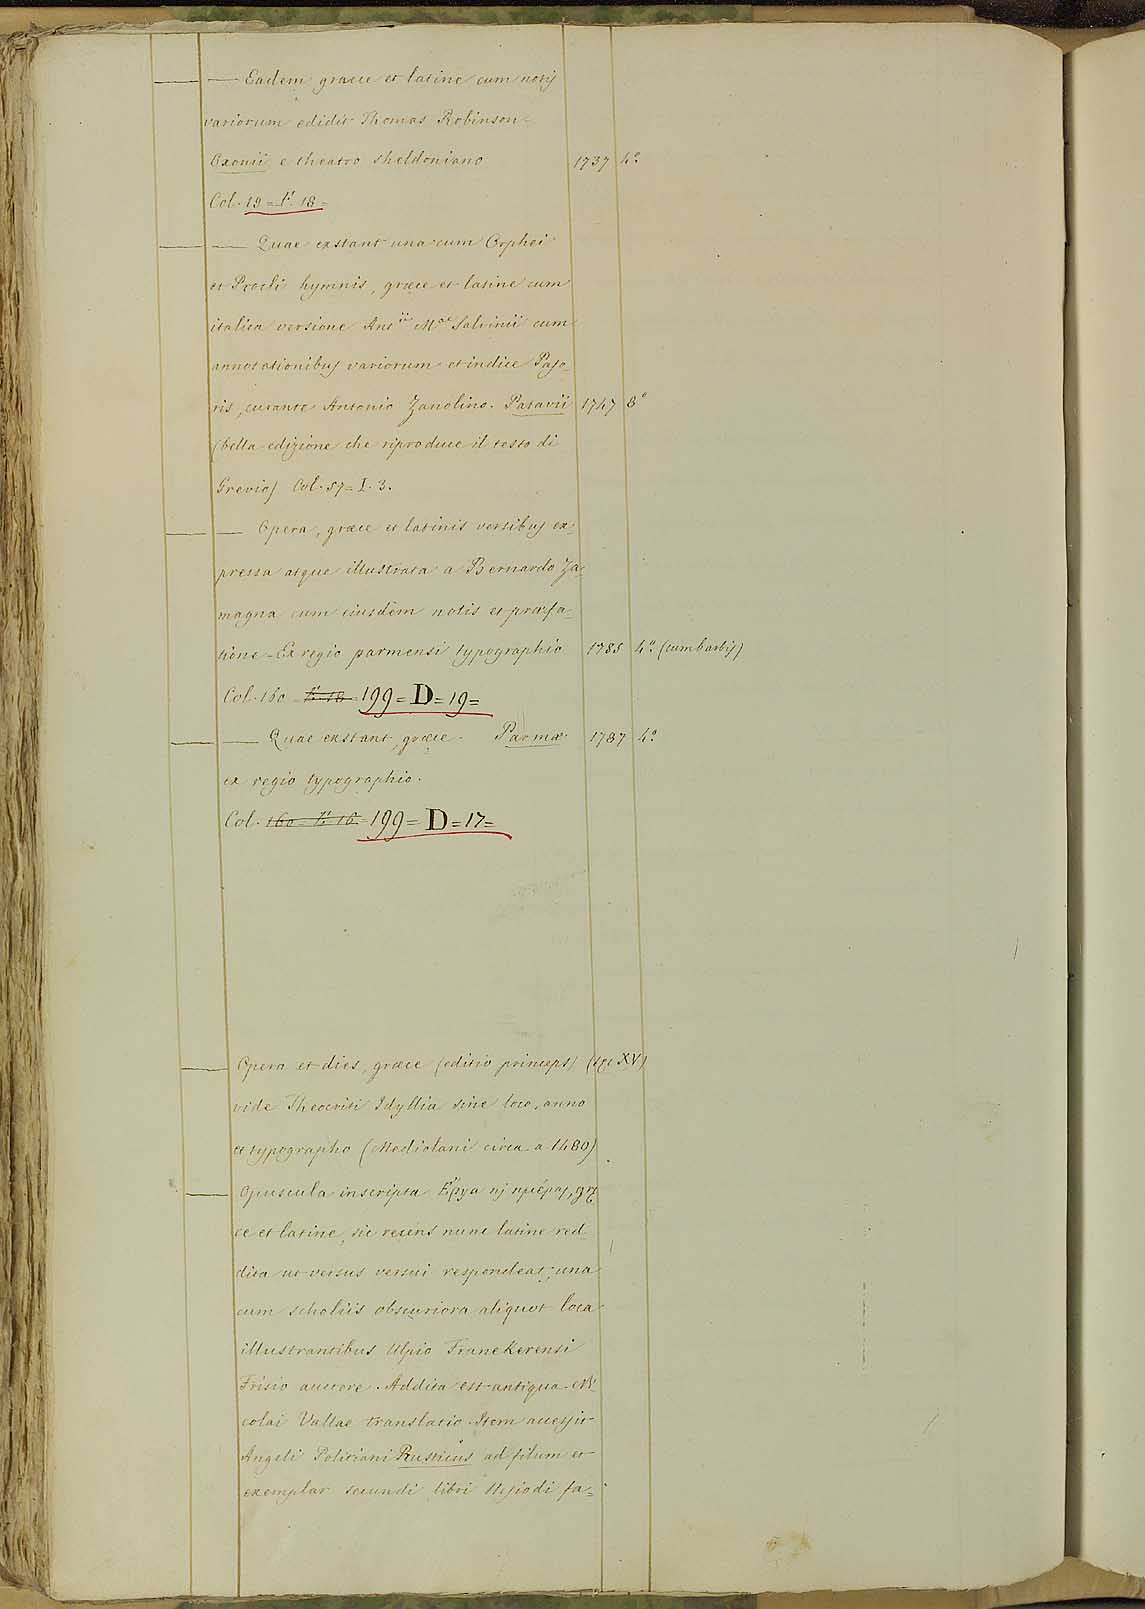 — — Eadem græce et latine cum notis
variorum edidit Thomas Robinson-
Oxonii e theatro sheldoniano 1737 4.°
Col. 19 = F. 18 =
— — Quae exstant una cum Orphei
et Procli hymnis, græce et latine cum
italica versione Ant.ii M.ae Salvinii cum
annotationibus variorum et indice Paso=
ris, curante Antonio Zanolino. Patavii 1747 8°
(bella edizione che riproduce il testo di
Grevio) Col. 57 = I. 3.
— — Opera, græce et latinis versibus ex=
pressa atque illustrata a Bernardo Za=
magna cum eiusdem notis et præfa=
tione - Ex regio parmensi typographio 1785 4.° (cum barbis)
Col. 160 = F. 18 = 199 = D = 19 =
— — Quae exstant, græce. Parmæ 1787 4.°
ex regio typographio.
Col. 160 = F. 16 = 199 = D = 17 =
— Opera et dies, græce (editio princeps) (sæc XV)
vide Theocriti Idyllia sine loco, anno
et typographo (Mediolani circa a. 1480)
— Opuscula inscripta Ἔργα ϗ ἡμέραι, græ
ce et latine, sic recens nunc latine red
dita ut versus versui respondeat; una
cum scholiis obscuriora aliquot loca
illustrantibus Ulpio Franekerensi
Frisio auctore. Addita est antiqua Ni
colai Vallae translatio. Item accessit
Angeli Politiani Rusticus ad filum et
exemplar secundi libri Hesiodi fa=